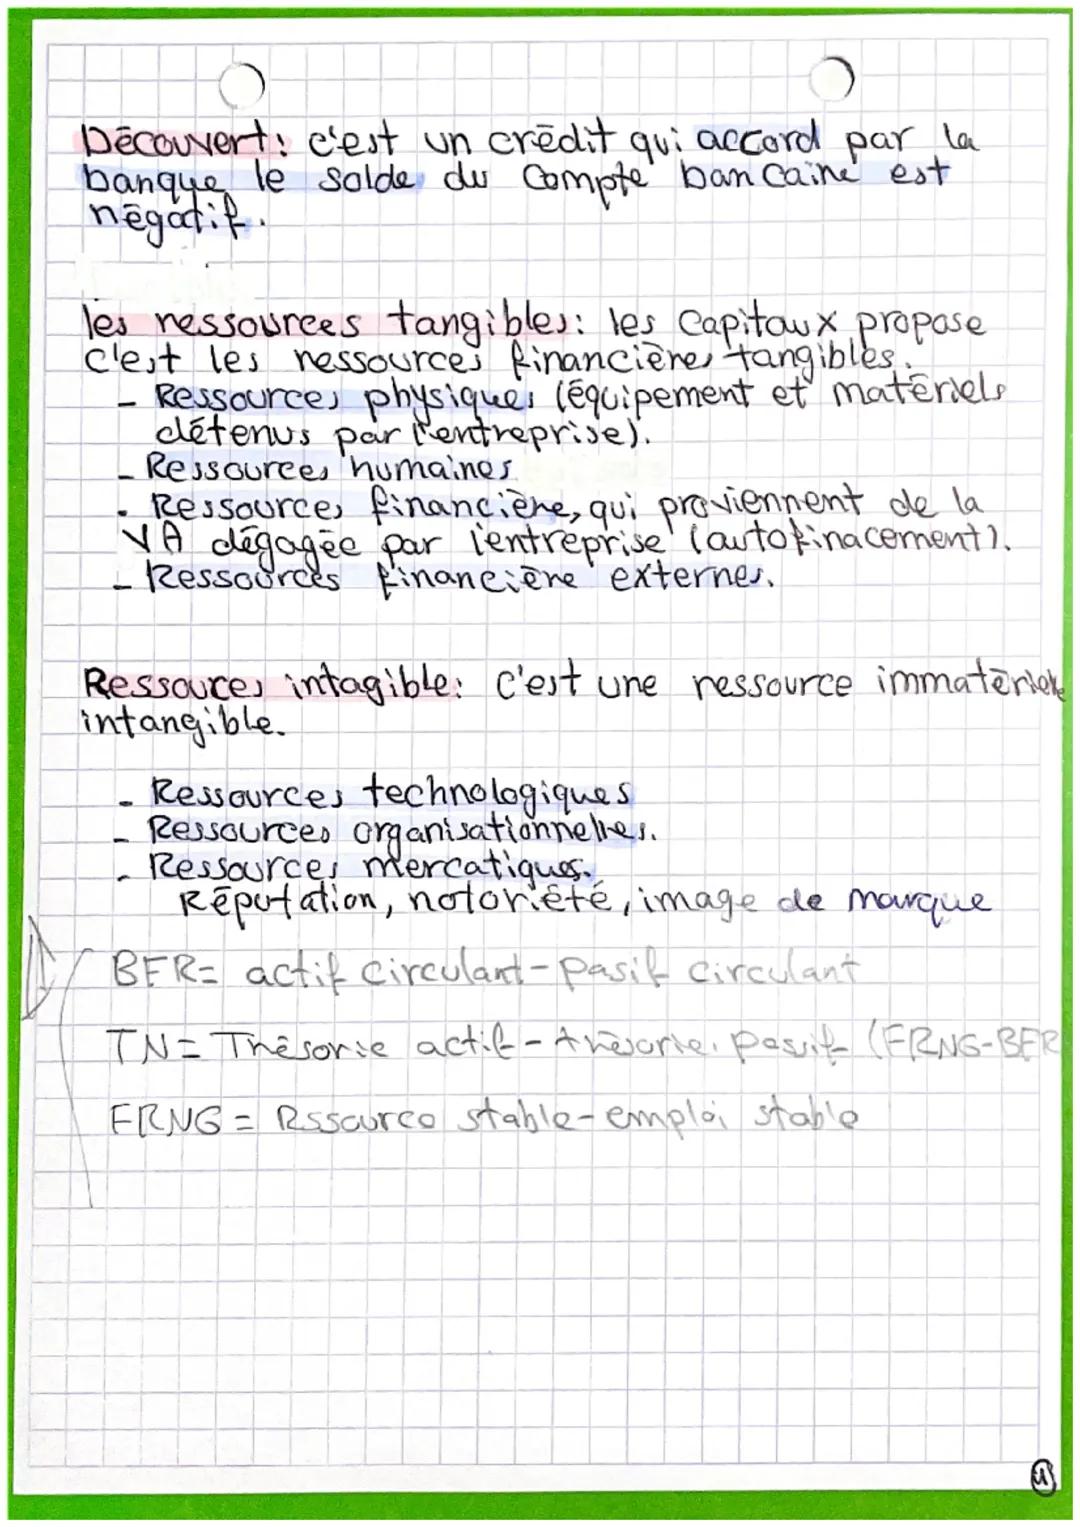 Découvert: c'est un crédit qui accord par la
banque le solde du compte bancaine est
négatif.
les ressources tangibles: les capitaux propose
c'est les ressources financières tangibles.
- Ressources physiques (équipement et matériels
détenus par l'entreprise).
- Ressources humaines
- Ressources financière, qui proviennent de la
VA dégagée par l'entreprise (autofinacement).
- Ressources financière externes.
Ressouces intagible: c'est une ressource immatériele
intangible.
- Ressources technologiques
- Ressources organisationnelles.
- Ressources mercatiques.
Réputation, notoriété, image de marque
BFR= actif circulant-pasif circulant
TN= Thésorie actif-thésorie passif (FRNG-BFR
FRNG = Rssource stable-emploi stable